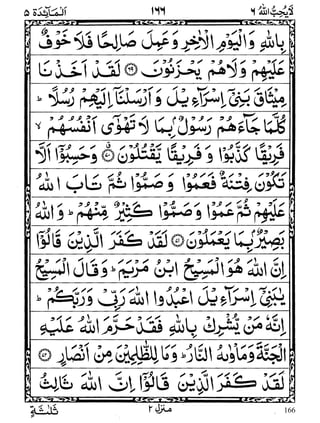 لَا يُحِبُّ اللهُ ٦ ١٦٦ اَلْمَآئِدَة ٥
بِاللّٰهِ وَالْيَوْمِ الْاٰخِرِ وَعَمِلَ صَالِحًا فَلَا خَوْفٌ
عَلَيْهِمْ وَلَاهُمْ يَحْزَنُوْنَ ﴿٦٩﴾ لَقَدْ اَخَذْنَا
مِيْثَاقَ بَنِيْٓ اِسْرَآءِيْلَ وَاَرْسَلْنَآ اِلَيْهِمْ رُسُلًا ؕ
كُلَّمَا جَآءَهُمْ رَسُوْلٌۢ بِمَا لَا تَهْوٰٓى اَنْفُسُهُمْ ۙ
فَرِيْقًا كَذَّبُوْا وَ فَرِيْقًا يَّقْتُلُوْنَ ﴿٧٠﴾ وَحَسِبُوْٓا اَلَّا
تَكُوْنَ فِتْنَةٌ فَعَمُوْا وَ صَمُّوْا ثُمَّ تَابَ اللّٰهُ
عَلَيْهِمْ ثُمَّ عَمُوْا وَ صَمُّوْا كَثِيْرٌ مِّنْهُمْ ؕ وَاللّٰهُ
بَصِيْرٌۢ بِمَا يَعْمَلُوْنَ ﴿٧١﴾ لَقَدْ كَفَرَ الَّذِيْنَ قَالُوْٓا
اِنَّ اللّٰهَ هُوَ الْمَسِيْحُ ابْنُ مَرْيَمَ ؕ وَقَالَ الْمَسِيْحُ
يٰبَنِيْٓ اِسْرَآءِيْلَ اعْبُدُوا اللّٰهَ رَبِّيْ وَرَبَّكُمْ ؕ
اِنَّهٗ مَنْ يُّشْرِكْ بِاللّٰهِ فَقَدْ حَرَّمَ اللّٰهُ عَلَيْهِ
الْجَنَّةَ وَمَاْوٰىهُ النَّارُ ؕ وَمَا لِلظّٰلِمِيْنَ مِنْ اَنْصَارٍ ﴿٧٢﴾
لَقَدْ كَفَرَ الَّذِيْنَ قَالُوْٓا اِنَّ اللّٰهَ ثَالِثُ
ثَلٰثَةٍ منزل ٢ 166